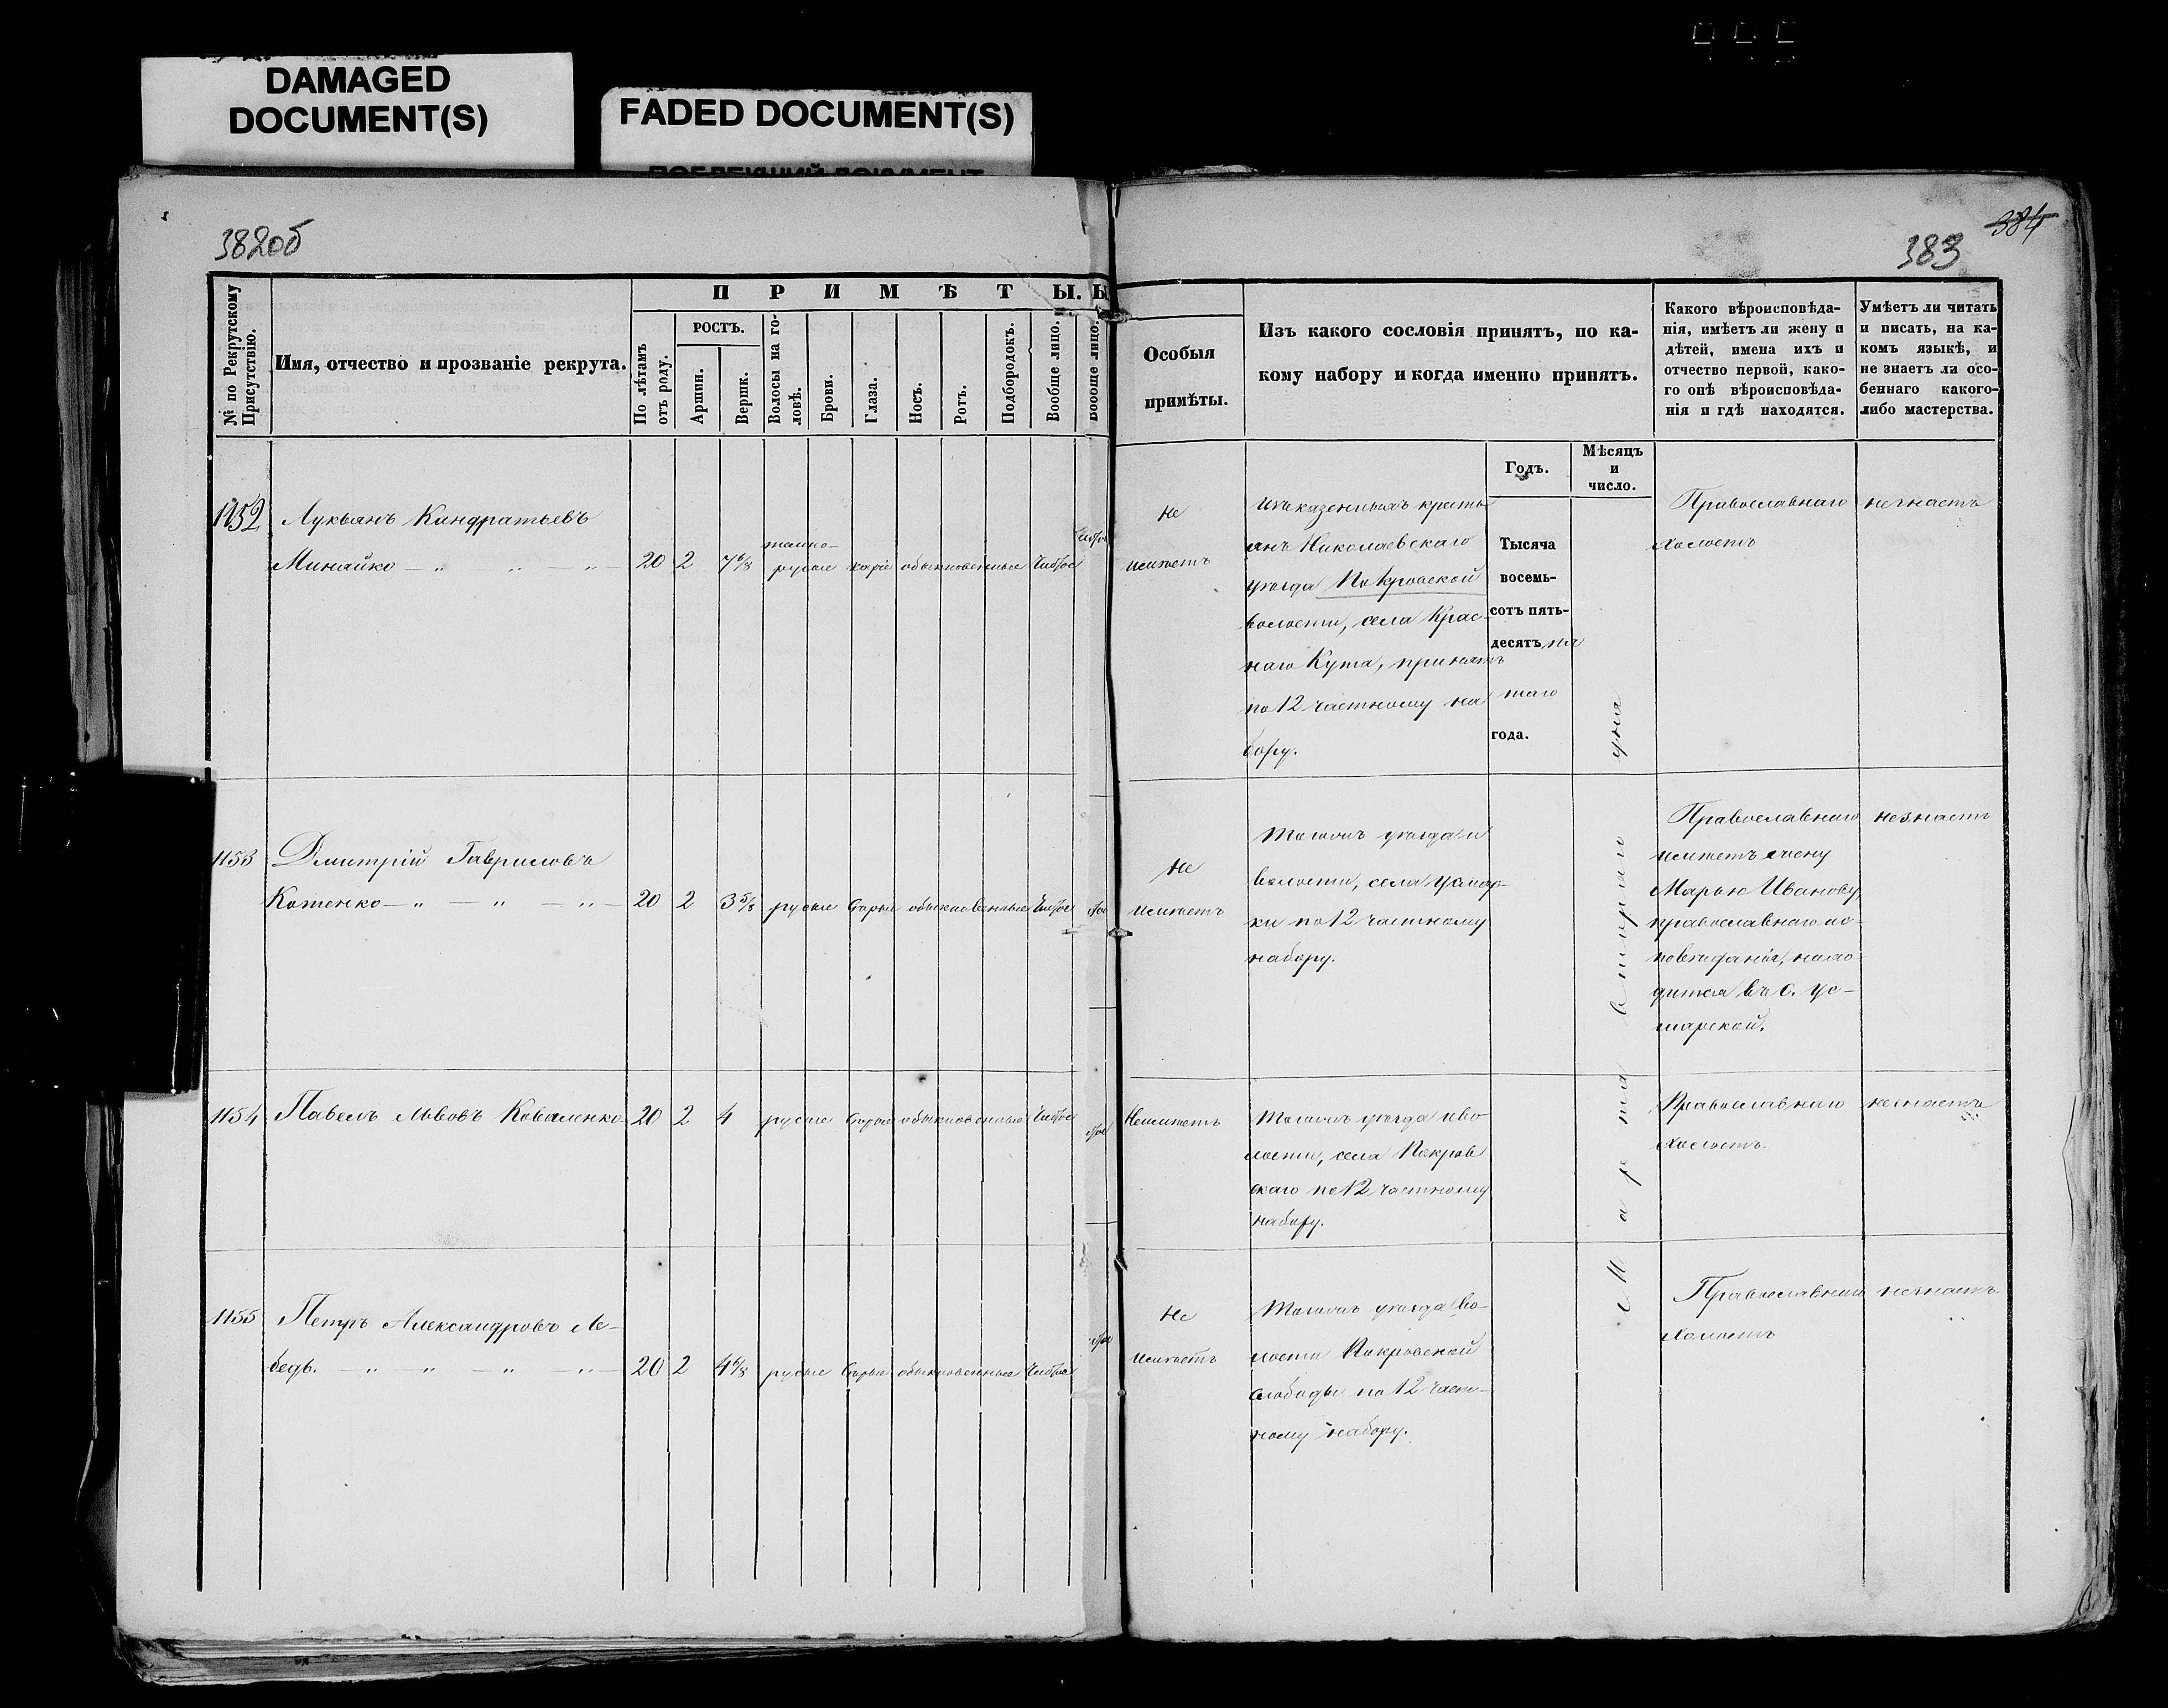 DAMAGED
DOCUMENT(S)
FADED DOCUMENT(S)
382об
384
383
№ по Рекрутскому
Присутствію.
Имя, отчество и прозваніе рекрута.
ПРИМѢТЫ.
По лѣтамъ
отъ роду.
РОСТЪ.
Аршин.
Вершк.
Волосы на го-
ловѣ.
Брови.
Глаза.
Носъ.
Ротъ.
Подбородокъ.
Вообще лицо.
Вообще лицо.
Особыя
примѣты.
Изъ какого сословія принятъ, по ка-
кому набору и когда именно принятъ.
Какого вѣроисповѣда-
нія, имѣетъ ли жену и
дѣтей, имена ихъ и
отчество первой, како-
го онѣ вѣроисповѣда-
нія и гдѣ находятся.
Умѣетъ ли читать
и писать, на ка-
комъ языкѣ, и
не знаетъ ли осо-
беннаго какого-
либо мастерства.
Годъ.
Мѣсяцъ
и
число.
1152
Лукьянъ Кандратьевъ
Минайко — „ „ — „ —
20 2 7 6/8
темно-
русые каріе обыкновенные чистое
не
имѣетъ
изъ казенныхъ кресть
янъ Николаевскаго
уѣзда Покровской
волости, села Крас-
наго Кута, принятъ
по 12 частному на
бору.
Тысяча
восемь-
сотъ пять-
десятъ пя
таго
года.
Марта втораго
дня
Православнаго
холостъ
не знаетъ
1153
Дмитрій Гавриловъ
Котенко — „ — „ — „ —
20 2 3 5/8 русые сѣрые обыкновенные чистое
не
имѣетъ
Тогожъ уѣзда и
волости, села Узмор-
ки по 12 частному
набору.
Православнаго
имѣетъ жену
Марью Иванову,
православнаго ис-
повѣданія, нахо-
дится въ с. Уз-
морской.
не знаетъ
1154
Павелъ Львовъ Коваленко
20 2 4 русые сѣрые обыкновенные чистое
Неимѣетъ
Тогожъ уѣзда и во
лости, села Покров
скаго по 12 частному
набору.
Православнаго
холостъ
не знаетъ
1155
Петръ Александровъ Ле-
бедь. — „ — „ — „ — „ —
20 2 4 6/8 русые сѣрые обыкновенные чистое
не
имѣетъ
Тогожъ уѣзда во-
лости Покровской
слободы по 12 част-
ному набору.
Православнаго
холостъ
не знаетъ